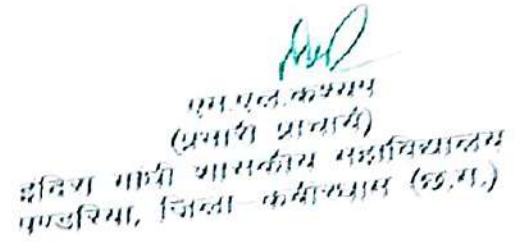 एम.एल.कश्यप
(प्रभारी प्राचार्य)
इंदिरा गांधी शासकीय महाविद्यालय
पण्डरिया, जिला-कबीरधाम (छ.ग.)